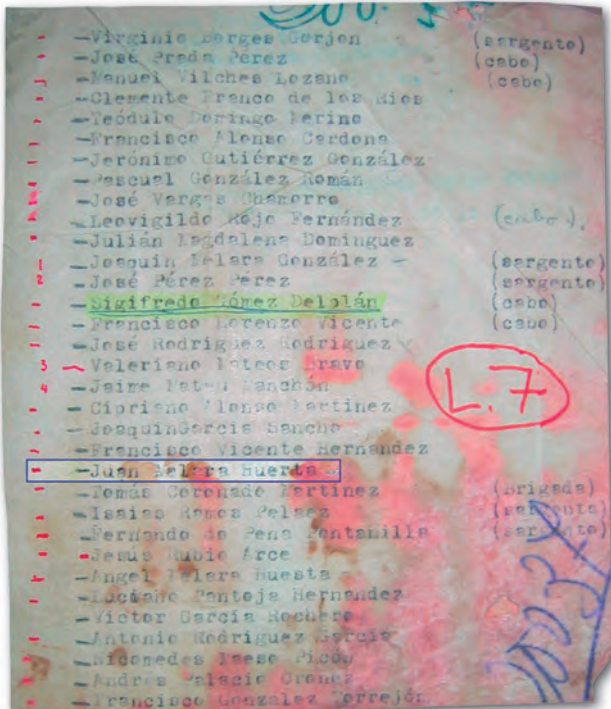 -Virginio Borges Gorjon (sargento)
-José Prada Pérez (cabo)
-Manuel Vilches Lozano (cabo)
-Clemente Franco de los Rios
-Teódulo Domingo Merino
-Francisco Alonso Cardona
-Jerónimo Gutiérrez González
-Pascual González Román
-José Vargas Chamorro
-Leovigildo Rojo Fernández (cabo),
-Julián Magdalena Dominguez
1 -Joaquin Melara González - (sargento)
2 -José Pérez Pérez (sargento)
-Sigifredo Gómez (cabo)
-Francisco Lorenzo Vicente (cabo)
-José Rodriguez Rodriguez
3 -Valeriano Mateos Bravo
4 -Jaime Manchón
L.7
-Cipriano Alonso Martinez
-JoaquinGarcia Sancho
-Francisco Vicente Hernandez
-Juan Melara Huerta
-Tomás Coronado Martinez (Brigada)
-Isaias Ramos Pelaez (sargento)
-Fernando de Pena Fontanilla (sargento)
-Jesús Rubio Arce
-Angel Melara Huesta
-Luciano Pantoja Hernandez
-Victor García Rochero
-Antonio Rodriguez García
-Nicomedes Picón
-Andres Palacio
-Francisco González Torrejón